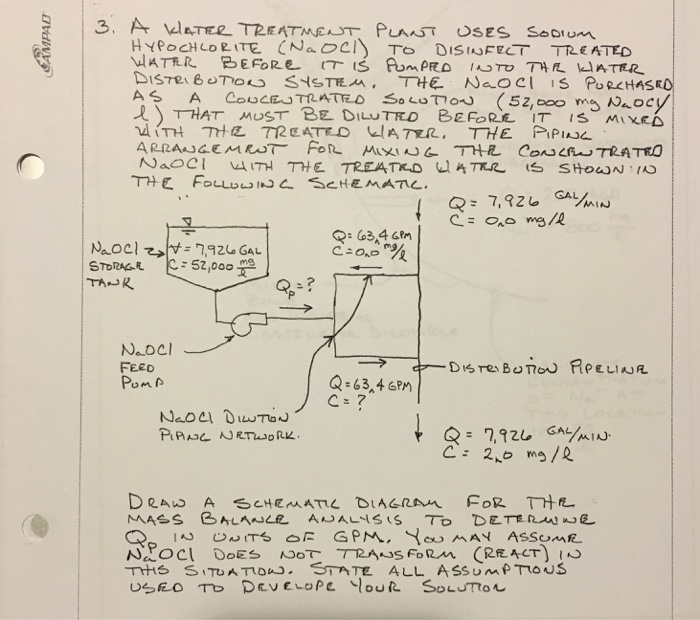 AMPAD
3. A WATER TREATMENT PLANT USES SODIUM
HYPOCHLORITE (NaOCl) TO DISINFECT TREATED
WATER BEFORE IT IS PUMPED INTO THE WATER
DISTRIBUTION SYSTEM. THE NaOCl IS PURCHASED
AS A CONCENTRATED SOLUTION (52,000 mg NaOCl/
l) THAT MUST BE DILUTED BEFORE IT IS MIXED
WITH THE TREATED WATER. THE PIPING
ARRANGEMENT FOR MIXING THE CONCENTRATED
NaOCl WITH THE TREATED WATER IS SHOWN IN
THE FOLLOWING SCHEMATIC.
Q = 7,926 GAL/MIN
C = 0.0 mg/l
Q = 63.4 GPM
C = 0.0 mg/l
NaOCl
STORAGE
TANK
V = 7,926 GAL
C = 52,000 mg/l
Qp = ?
NaOCl
FEED
PUMP
DISTRIBUTION PIPELINE
Q = 63.4 GPM
C = ?
NaOCl DILUTION
PIPING NETWORK.
Q = 7,926 GAL/MIN.
C = 2.0 mg/l
DRAW A SCHEMATIC DIAGRAM FOR THE
MASS BALANCE ANALYSIS TO DETERMINE
Qp IN UNITS OF GPM. YOU MAY ASSUME
NaOCl DOES NOT TRANSFORM (REACT) IN
THIS SITUATION. STATE ALL ASSUMPTIONS
USED TO DEVELOPE YOUR SOLUTION